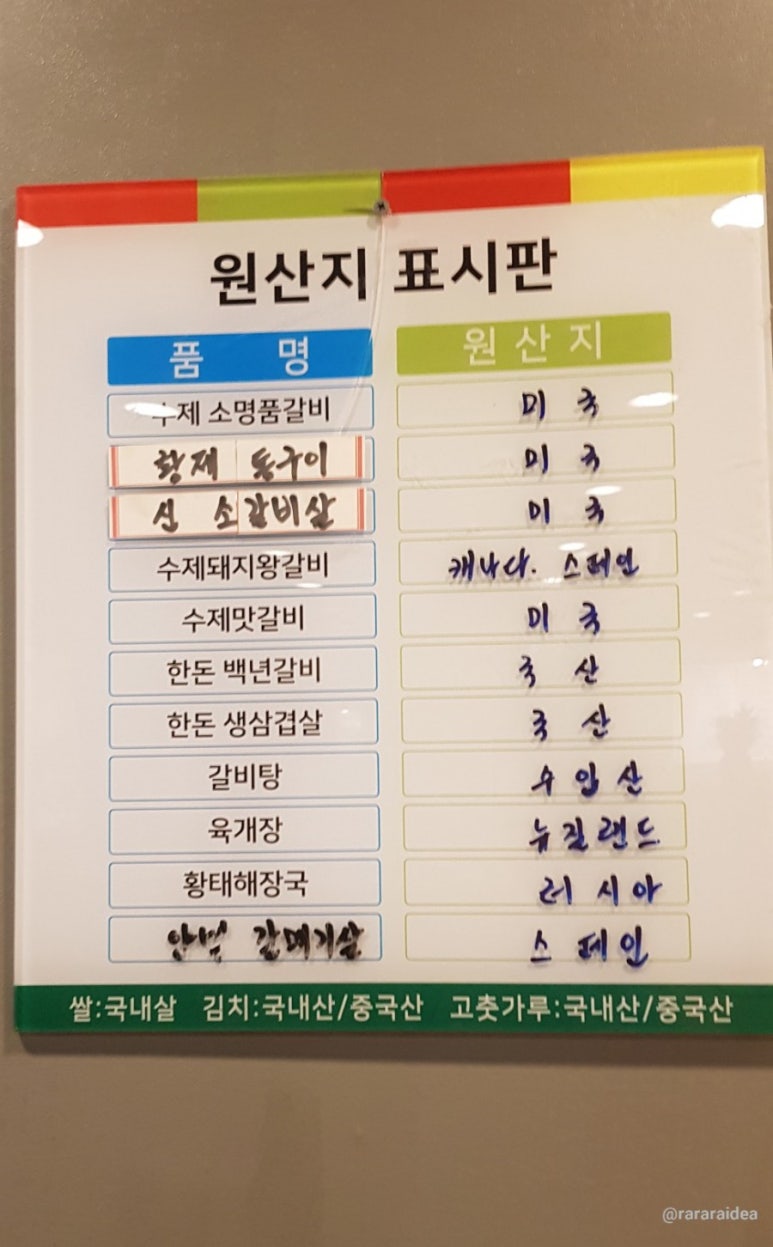 원산지 표시판
품 명 원산지
수제 소명품갈비 미국
황제 통구이 미국
신 소갈비살 미국
수제돼지왕갈비 캐나다. 스페인
수제맛갈비 미국
한돈 백년갈비 국산
한돈 생삼겹살 국산
갈비탕 수입산
육개장 뉴질랜드
황태해장국 러시아
양념 갈매기살 스페인
쌀:국내살 김치:국내산/중국산 고춧가루:국내산/중국산
@rararaidea